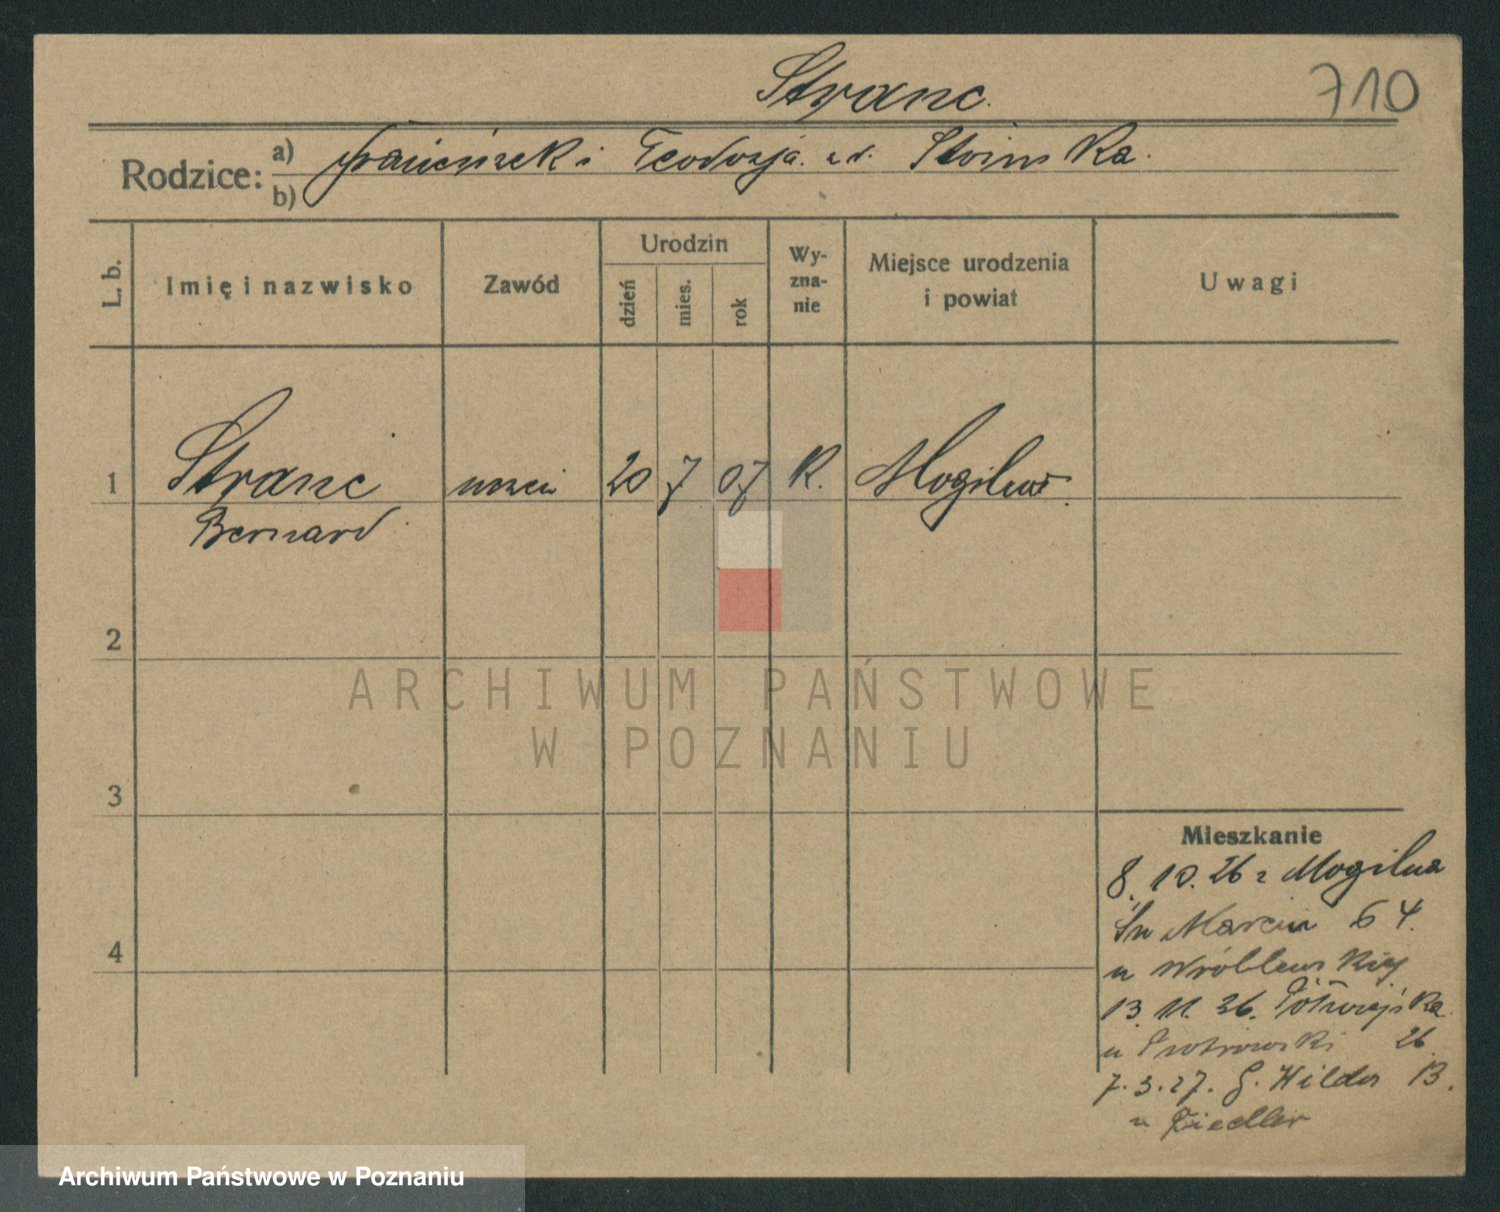 Stranc.
710
Rodzice: a) Franciszek i Teodozja. z d. Stoinska.
b)
L. b.
Imię i nazwisko
Zawód
Urodzin
dzień
mies.
rok
Wy-
zna-
nie
Miejsce urodzenia
i powiat
Uwagi
1 Stranc uczeń 20 7 07 K. Mogilno.
Bernard
2
ARCHIWUM PAŃSTWOWE
W POZNANIU
3
Mieszkanie
8. 10. 26 z Mogilna
Św Marcin 64.
u Wróblewskiej
13. 11. 26. Półwiejska
u Piotrowski 26
7. 3. 27. G. Wilda 13.
u Fiedler
4
Archiwum Państwowe w Poznaniu